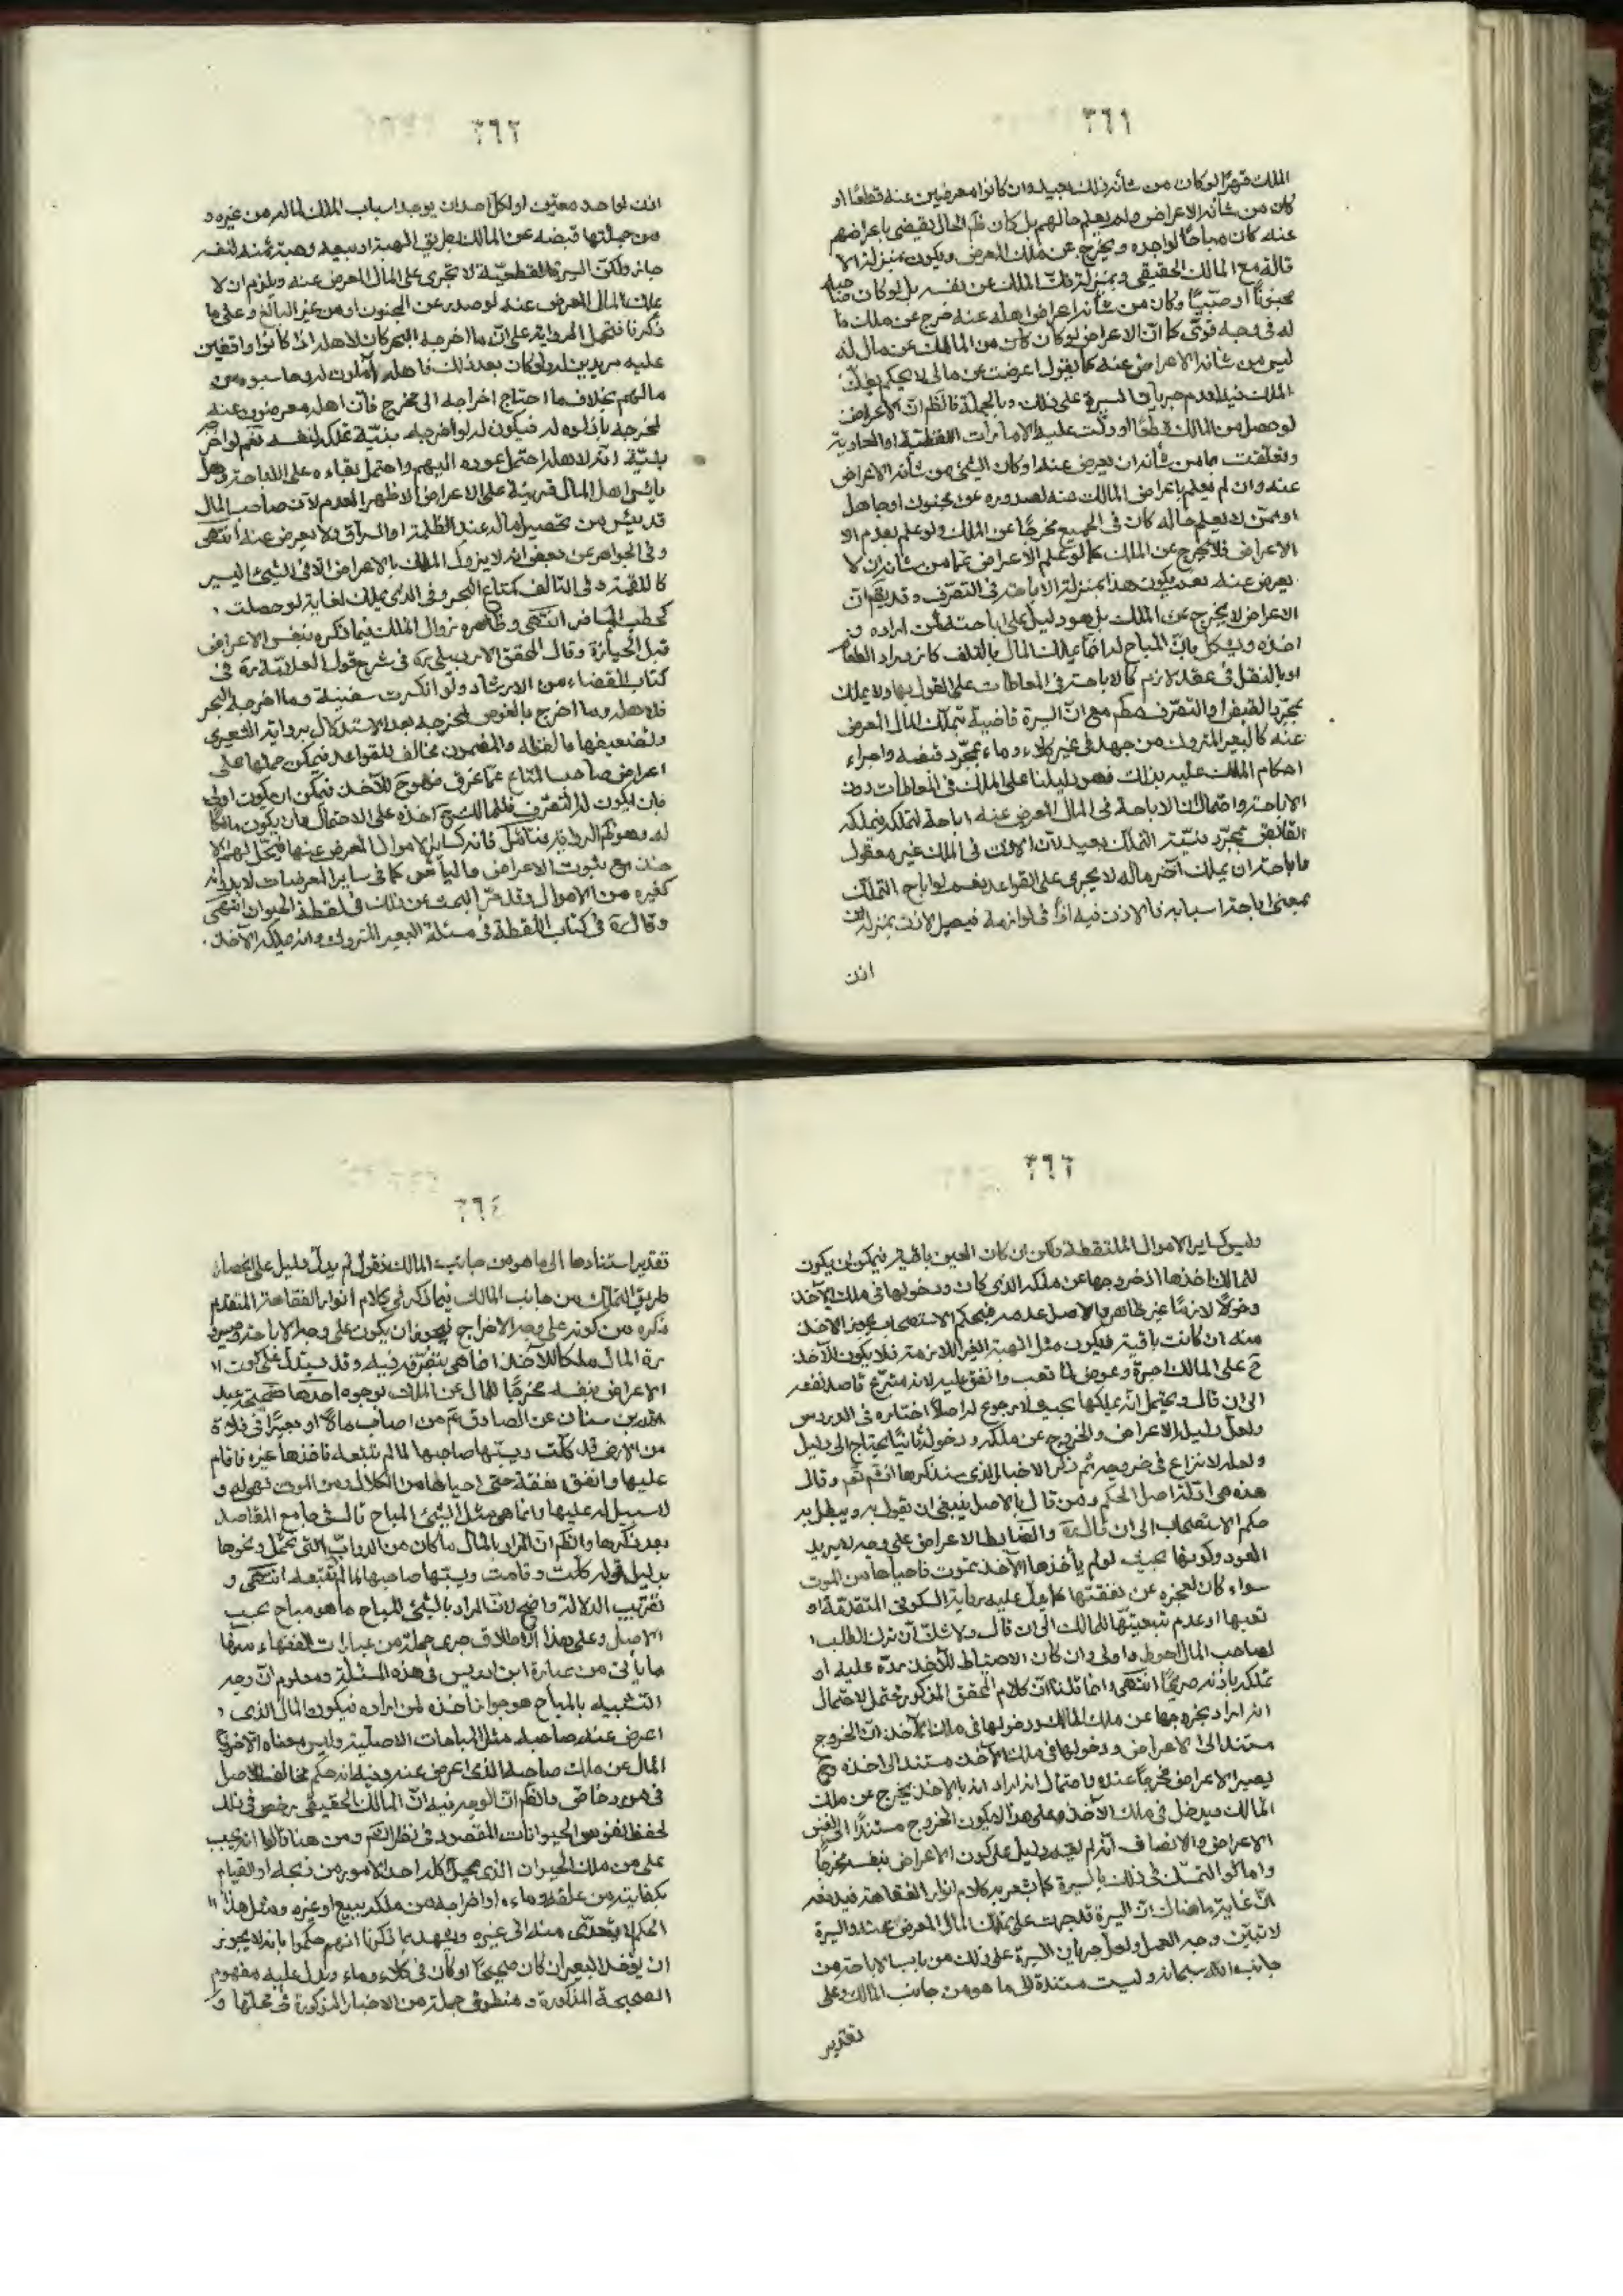 ٣٦١
الملك قهرًا لو كان من شأنه ذلك بعيد وان كانوا معرضين عنه قطعًا او
كان من شأنه الاعراض ولم يعلم حالهم بل كان ظم الحال يقضي باعراضهم
عنه كان مباحًا لواجده ويخرج عن ملك المعرض ويكون بمنزلة الا
قالة مع المالك الحقيقي وبمنزلة فك الملك عن نفسه بل لو كان صاحبه
مجنونًا او صبيًا وكان من شأنه اعراض اهله عنه خرج عن ملك ما
له في وجه قوي كما ان الاعراض لو كان من المالك عن مال له
ليس من شأنه الاعراض عنه كما يقول اعرضت عن مالي لا يحكم بفك
الملك فيه لعدم جريان السيرة على ذلك وبالجملة فالظم ان الاعراض
لو حصل من المالك قطعًا او دلت عليه الامارات اللفظية او الحالية
وتعلقت بما من شأنه ان يعرض عنه او كان الشئ من شأنه الاعراض
عنه وان لم نعلم باعراض المالك عنه لصدوره عن مجنون او جاهل
او ممن لا يعلم حاله كان في الجميع مخرجًا عن الملك ولو علم بعدم الا
الاعراض فلا يخرج عن الملك كما لو علم الاعراض عما من شأنه ان لا
يعرض عنه نعم يكون هذا بمنزلة الاباحة في التصرف وقد يقم ان
الاعراض لا يخرج عن الملك بل هو دليل على اباحته لمن اراده و
اخذه ويشكل بان المباح له انما يملك المال بالتلف كازدراد الطعام
او بالنقل في عقد لازم كالاباحة في المعاطات على القول بها ولا يملك
بمجرد القبض والتصرف مكم مع ان السيرة قاضية بتملك المال المعرض
عنه كالبعير المتروك من جهد في غير كلاء وماء بمجرد قبضه واجراء
احكام الملك عليه بذلك فهو دليلنا على الملك في المعاطات دون
الاباحة واحتمال ان الاباحة في المال المعرض عنه اباحة لتملكه فيملكه
القابض بمجرد نية التملك بعيد لان الاذن في الملك غير معقول
فاباحة ان يملك آخر ماله لا يجري على القواعد نعم لو اباح التملك
بمعنى اباحة اسبابه فالاذن فيه اذن في لوازمه فيصير الاذن بمنزلة
اذن
٣٦٢
اذن لواحد معين او لكل احد ان يوجد اسباب الملك لماله من غيره و
من جملتها قبضه عن المالك بطريق الهبة او بيعه وهبة ثمنه لنفسه
جائز ولكن السيرة القطعية لا تجري على المال المعرض عنه ويلزم ان لا
يملك المال المعرض عنه لو صدر عن المجنون او من غير البالغ وعلى ما
ذكرنا فتحمل الرواية على ان ما اخرجه البحر كان لاهله اذا كانوا واقفين
عليه مريدين له ولو كان بعد ذلك فاهله آملون له وما سيوه من
مالهم بخلاف ما احتاج اخراجه الى مخرج فان اهله معرضون عنه
لمخرجه باذلوه له فيكون له لو اخرجه بنية تملكه لنفسه نعم لو اخرجه
بنية انه لاهله احتمل عوده اليهم واحتمل بقاءه على الاباحة وهل
يأس اهل المال قرينة على الاعراض الاظهر العدم لان صاحب المال
قد ييئس من تحصيل ماله عند الظلمة او السراق ولا يعرض عنه انتهى
وفي الجواهر عن بعض انه لا يزول الملك بالاعراض الا في الشئ اليسير
كاللقمة وفي التالف كمتاع البحر وفي الذي يملك لغاية لو حصلت
كحطب المسافر انتهى وظاهره زوال الملك فيما ذكره بنفس الاعراض
قبل الحيازة وقال المحقق الاردبيلي ره في شرح قول العلامة ره في
كتاب القضاء من الارشاد ولو انكسرت سفينة وما اخرجه البحر
فلاهله وما اخرج بالغوص لمخرجه بعد الاستدلال برواية الشعيري
وتضعيفها ما لفظه والمضمون مخالف للقواعد فيمكن حملها على
اعراض صاحب المتاع عما غرق فهو ح للآخذ فيمكن ان يكون اولى
بان يكون له التصرف فللمالك ح اخذه على الاحتمال وان يكون مالكا
له وهو ظم الرواية فتأمل فانه كساير الاموال المعرض عنها فيحتمل لهم الا
خذ مع ثبوت الاعراض ما ليأس كما في ساير المعرضات لا بد له
كغيره من الاموال وقد مر البحث عن ذلك في لقطة الحيوان انتهى
وقال ره في كتاب اللقطة في مسئلة البعير المتروك وانه يملكه الآخذ
٣٦٣
وليس كساير الاموال الملتقطة ولكن ان كان العين باقية فيمكن ان يكون
للمالك اخذها اذ خروجها عن ملكه الذي كان ودخولها في ملك الآخذ
دخولًا لازمًا غير ظاهر والاصل عدمه فبحكم الاستصحاب يجوز الاخذ
منه ان كانت باقية فيكون مثل الهبة الغير اللازمة فلا يكون للآخذ
ح على المالك اجرة وعوض لما تعب وانفق عليه لانه متبرع قاصد نفعه
الى ان قال ويحتمل انه يملكها بحيث لا رجوع له اصلًا اختاره في الدروس
ولعل دليله الاعراض والخروج عن ملكه ودخوله ثانيًا يحتاج الى دليل
ولعله لا نزاع في خروجه ثم ذكر الاخبار الذي سنذكرها انشم تعم وقال
هذه هي ادلة اصل الحكم ومن قال بالاصل ينبغي ان يقول به ويبطل به
حكم الاستصحاب الى ان قال ره والضابط الاعراض على وجه لا يريد
العود وكونها بحيث لو لم يأخذها الآخذ تموت فاحياها من الموت
سواء كان لعجزه عن نفقتها كما دل عليه رواية السكوني المتقدمة او
تعبها او عدم تبعيتها للمالك الى ان قال ولا شك ان ترك الطلب
لصاحب المال احوط واولى وان كان الاحتياط للآخذ رده عليه او
تملكه باذنه صريحًا انتهى وانما قلنا ان كلام المحقق المذكور محتمل لاحتمال
انه اراد بخروجها عن ملك المالك ودخولها في ملك الآخذ ان الخروج
مستند الى الاعراض ودخولها في ملك الآخذ مستند الى اخذه و ح
يصير الاعراض مخرجًا عنده واحتمال انه اراد انه بالاخذ يخرج عن ملك
المالك ويدخل في ملك الآخذ وعلى هذا لا يكون الخروج مستندًا الى نفس
الاعراض والانصاف انه لم يقم دليل على كون الاعراض بنفسه مخرجًا
واما التمسك في ذلك بالسيرة كما يشعر به كلام انوار الفقاهة فيدفعه
ان غاية ما هناك ان السيرة قد جرت على تملك المال المعرض عنه والسيرة
لا تبين وجه العمل ولعل جريان السيرة على ذلك من باب الاباحة من
جانب الله سبحانه وليست مستندة الى ما هو من جانب المالك وعلى
تقدير
٣٦٤
تقدير استنادها الى ما هو من جانب المالك نقول لم يدل دليل على انحصار
طريق التملك من جانب المالك فيما ذكره في كلام انوار الفقاهة المتقدم
ذكره من كونه على وجه الاخراج فيجوز ان يكون على وجه الاباحة وصيرو
رة المال ملكا للآخذ انما هي بتصرفه فيه وقد يستدل على كون
الاعراض بنفسه مخرجًا للمال عن الملك بوجوه احدها صحيحة عبد
الله بن سنان عن الصادق عم من اصاب مالًا او بعيرًا في فلاة
من الارض قد كلت وسيبها صاحبها لما لم تتبعه فاخذها غيره فاقام
عليها وانفق نفقة حتى احياها من الكلال ومن الموت فهي له و
لا سبيل له عليها وانما هي مثل الشئ المباح قال في جامع المقاصد
بعد ذكرها والظم ان المراد بالمال ما كان من الدواب التي تحمل ونحوها
بدليل قوله كلت وقامت وسيبها صاحبها لما لم تتبعه انتهى و
تقريب الدلالة واضح لان المراد بالشئ المباح ما هو مباح بحسب
الاصل وعلى هذا الاطلاق جرى جملة من عبارات الفقهاء منها
ما يأتي من عبارة ابن ادريس في هذه المسئلة ومعلوم ان وجه
التشبيه بالمباح هو جواز اخذه لمن اراده فيكون المال الذي
اعرض عنه صاحبه مثل المباحات الاصلية وليس معناه الا خروج
المال عن ملك صاحبه الذي اعرض عنه وفيه انه حكم مخالف للاصل
في مورد خاص والظم ان الوجه فيه ان المالك الحقيقي رخص في ذلك
لحفظ نفوس الحيوانات المقصود في نظر الشم ومن هنا قالوا انه يجب
على من ملك الحيوان الذي محل اكل احد الامور من ذبحه او القيام
بكفايته من علفه وماءه او اخراجه من ملكه ببيع او غيره ومثل هذا
الحكم لا يتعدى منه الى غيره ويشهد بما ذكرنا انهم حكموا بانه لا يجوز
ان يؤخذ البعير ان كان صحيحًا او كان في كلاء وماء ويدل عليه مفهوم
الصحيحة المذكورة و منطوق جملة من الاخبار المذكورة في محلها و